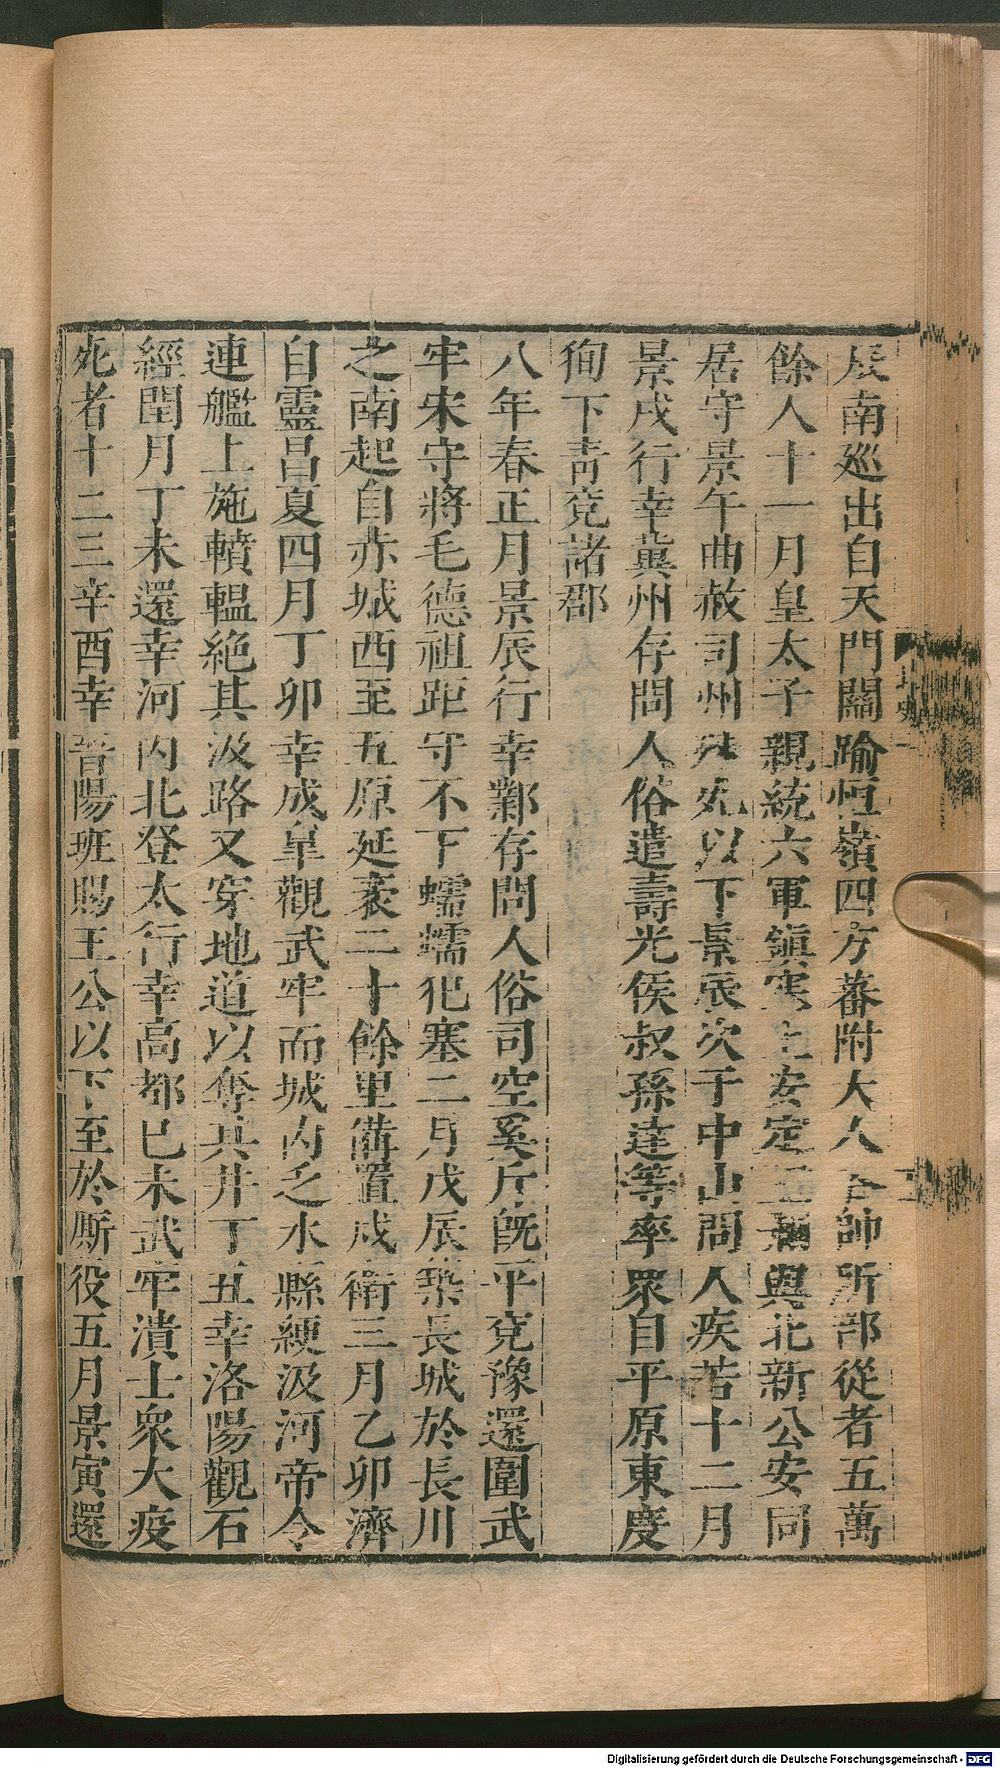 辰南巡出自天門關踰恒嶺四方蕃附大人各帥所部從者五萬
餘人十一月皇太子親統六軍鎮塞上安定王彌與北新公安同
居守景午曲赦司州殊死以下景辰次于中山問人疾苦十二月
景戌行幸冀州存問人俗遣壽光侯叔孫達等率眾自平原東度
徇下青兗諸郡
八年春正月景辰行幸鄴存問人俗司空奚斤既平兗豫還圍武
牢宋守將毛德祖距守不下蠕蠕犯塞二月戊辰築長城於長川
之南起自赤城西至五原延袤二十餘里備置戍衛三月乙卯濟
自靈昌夏四月丁卯幸成皐觀武牢而城內乏水縣綆汲河帝令
連艦上施轒轀絕其汲路又穿地道以奪其井丁丑幸洛陽觀石
經閏月丁未還幸河內北登太行幸高都己未武牢潰士衆大疫
死者十二三辛酉幸晉陽班賜王公以下至於厮役五月景寅還
Digitalisierung gefördert durch die Deutsche Forschungsgemeinschaft - DFG